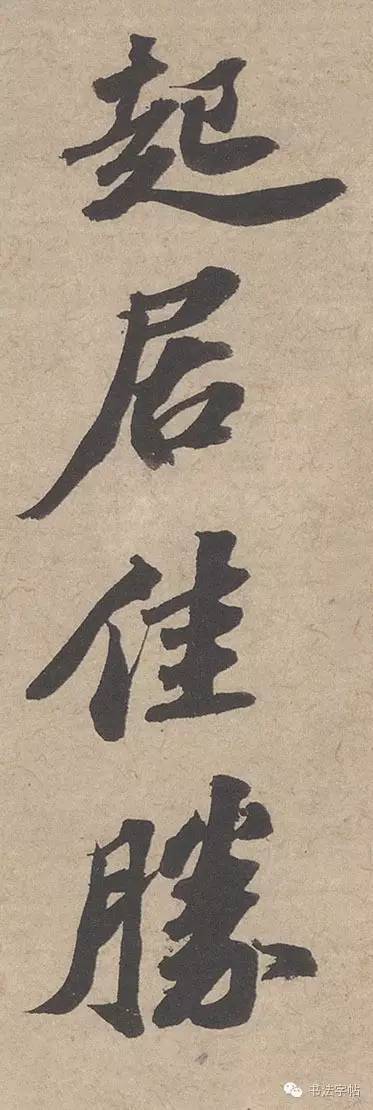 起居佳勝
书法字帖